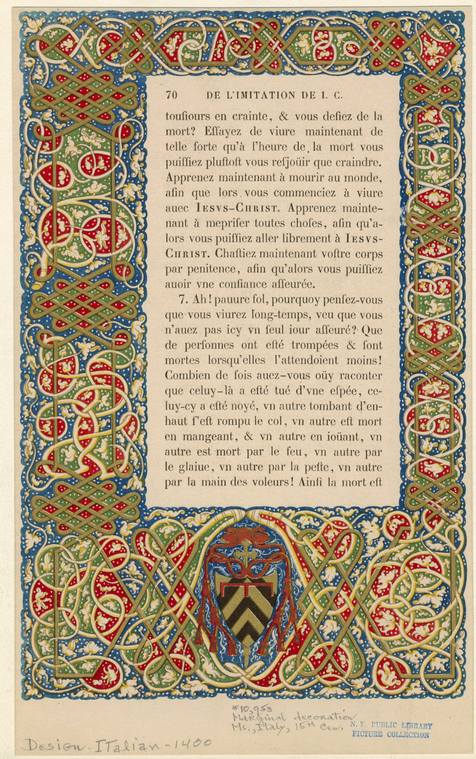 70 DE L'IMITATION DE I. C.
touſiours en crainte, & vous deſiez de la
mort? Eſſayez de viure maintenant de
telle ſorte qu'à l'heure de la mort vous
puiſſiez pluſtoſt vous reſjoüir que craindre.
Apprenez maintenant à mourir au monde,
afin que lors vous commenciez à viure
auec IESVS-CHRIST. Apprenez mainte-
nant à mepriſer toutes choſes, afin qu'a-
lors vous puiſſiez aller librement à IESVS-
CHRIST. Chaſtiez maintenant voſtre corps
par penitence, afin qu'alors vous puiſſiez
auoir vne confiance aſſeurée.
7. Ah! pauure fol, pourquoy penſez-vous
que vous viurez long-temps, veu que vous
n'auez pas icy vn ſeul iour aſſeuré? Que
de perſonnes ont eſté trompées & ſont
mortes lorsqu'elles l'attendoient moins!
Combien de fois auez-vous oüy raconter
que celuy-là a eſté tué d'vne eſpée, ce-
luy-cy a eſté noyé, vn autre tombant d'en-
haut ſ'eſt rompu le col, vn autre eſt mort
en mangeant, & vn autre en ioüant, vn
autre eſt mort par le feu, vn autre par
le glaiue, vn autre par la peſte, vn autre
par la main des voleurs! Ainſi la mort eſt
#10,953
Marginal decoration
Ms., Italy, 15th Cen.
N. Y. PUBLIC LIBRARY
PICTURE COLLECTION
Design - Italian - 1400